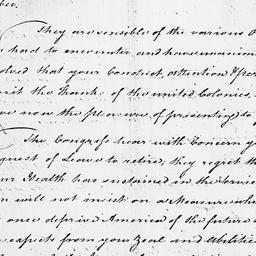 They are sensible of the various
had to encounter and have unanim
solved that your Conduct, attention &
merit the Thanks of the united Colonies,
have now the pleasure of presenting to
The Congress hear with Concern
Request of Leave to retire, they regret
Health has sustained in the Service
will not insist on a Measure wh
once deprive America of the future
expects from your Zeal and Abilities